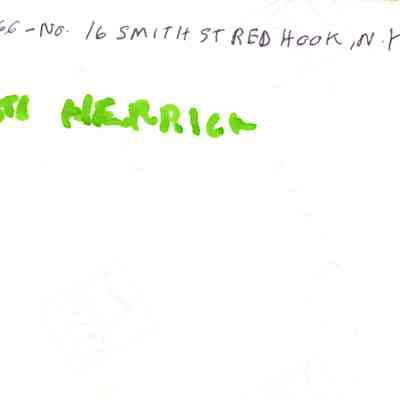 66-No. 16 SMITH ST RED HOOK, N.Y
HERRICK